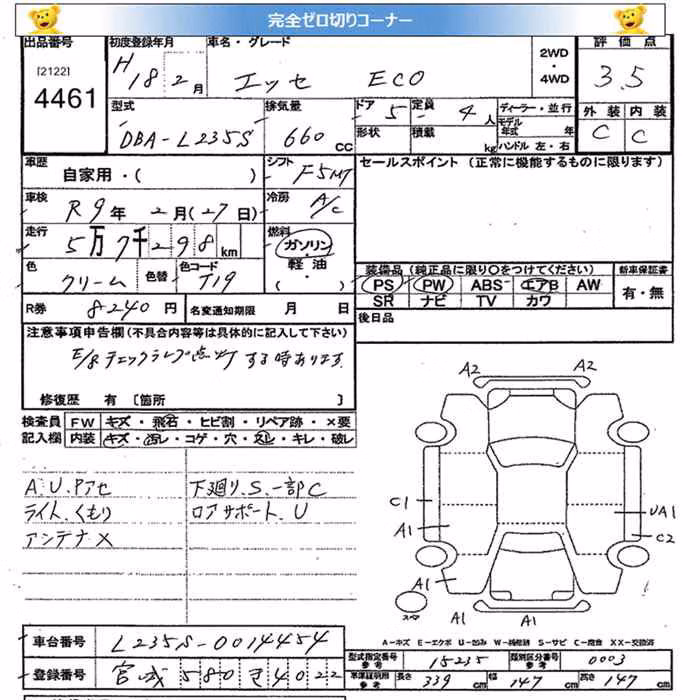 完全ゼロ切りコーナー
出品番号 初度登録年月 車名・グレード 2WD・4WD 評価点
[2122] 4461 H18年2月 エッセ ECO 3.5
型式 排気量 ドア 5 定員 4人 ディーラー・並行 外装 内装
DBA-L235S 660CC 形状 積載 kg モデル年式 年 ハンドル 左・右 C C
車歴 自家用・( ) シフト F5MT セールスポイント (正常に機能するものに限ります)
車検 R9年2月(27日) 冷房 A/C
走行 5万7千298km 燃料 ガソリン・軽油・( )
色 クリーム 色替 色コード T19 装備品 (純正品に限り○をつけてください) 新車保証書
PS PW ABS エアB AW 有・無
SR ナビ TV カワ
R券 8240円 名変通知期限 月 日 後日品
注意事項申告欄 (不具合内容等は具体的に記入して下さい)
E/gチェックランプ点灯する時あります
修復歴 有 [箇所 ]
検査員記入欄 FW キズ・飛石・ヒビ割・リペア跡・×要
内装 キズ・汚レ・コゲ・穴・スレ・キレ・破レ
A.U.Pアセ 下廻り.S.一部C
ライト.くもり ロアサポート.U
アンテナX
A2 A2
C1 A1 UA1 C2
A1 スペア A1 A1
A-キズ E-エクボ U-凹み W-補修跡 S-サビ C-腐食 XX-交換済
車台番号 L235S-0014454
型式指定番号 参考 15235 類別区分番号 参考 0003
登録番号 宮城 580 き 4022
車庫証明用 参考 長さ 339cm 幅 147cm 高さ 147cm